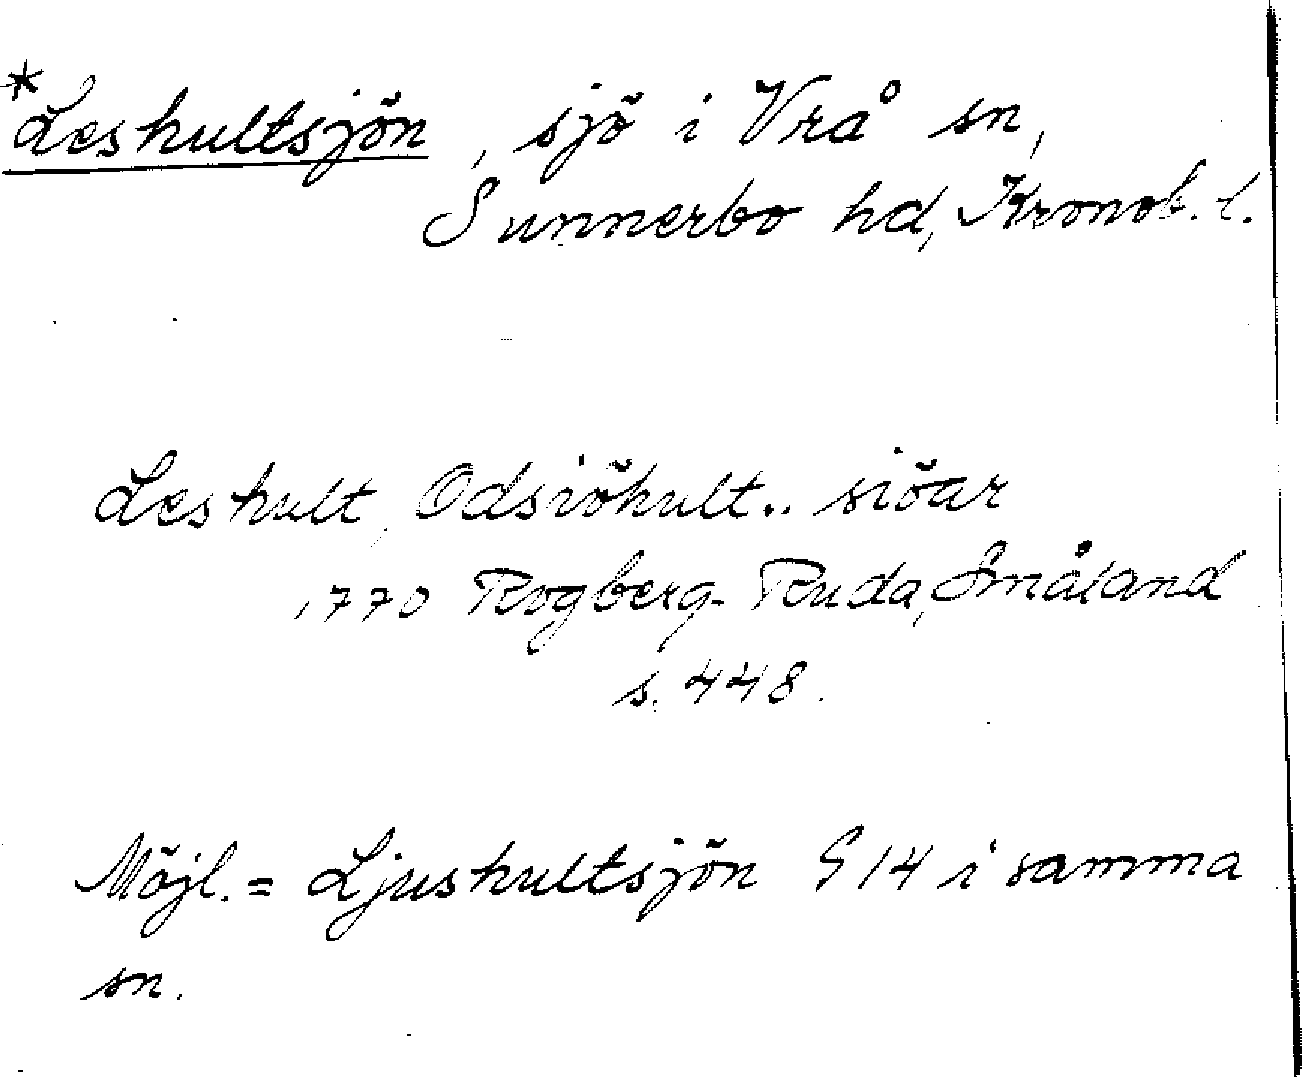 *Leshultsjön, sjö i Vrå sn,
Sunnerbo hd, Kronob. l.
Leshult, Odsiöhult.. siöar
1770 Rogberg-Ruda, Småland
s. 448.
Möjl. = Ljushultsjön S 14 i samma
sn.